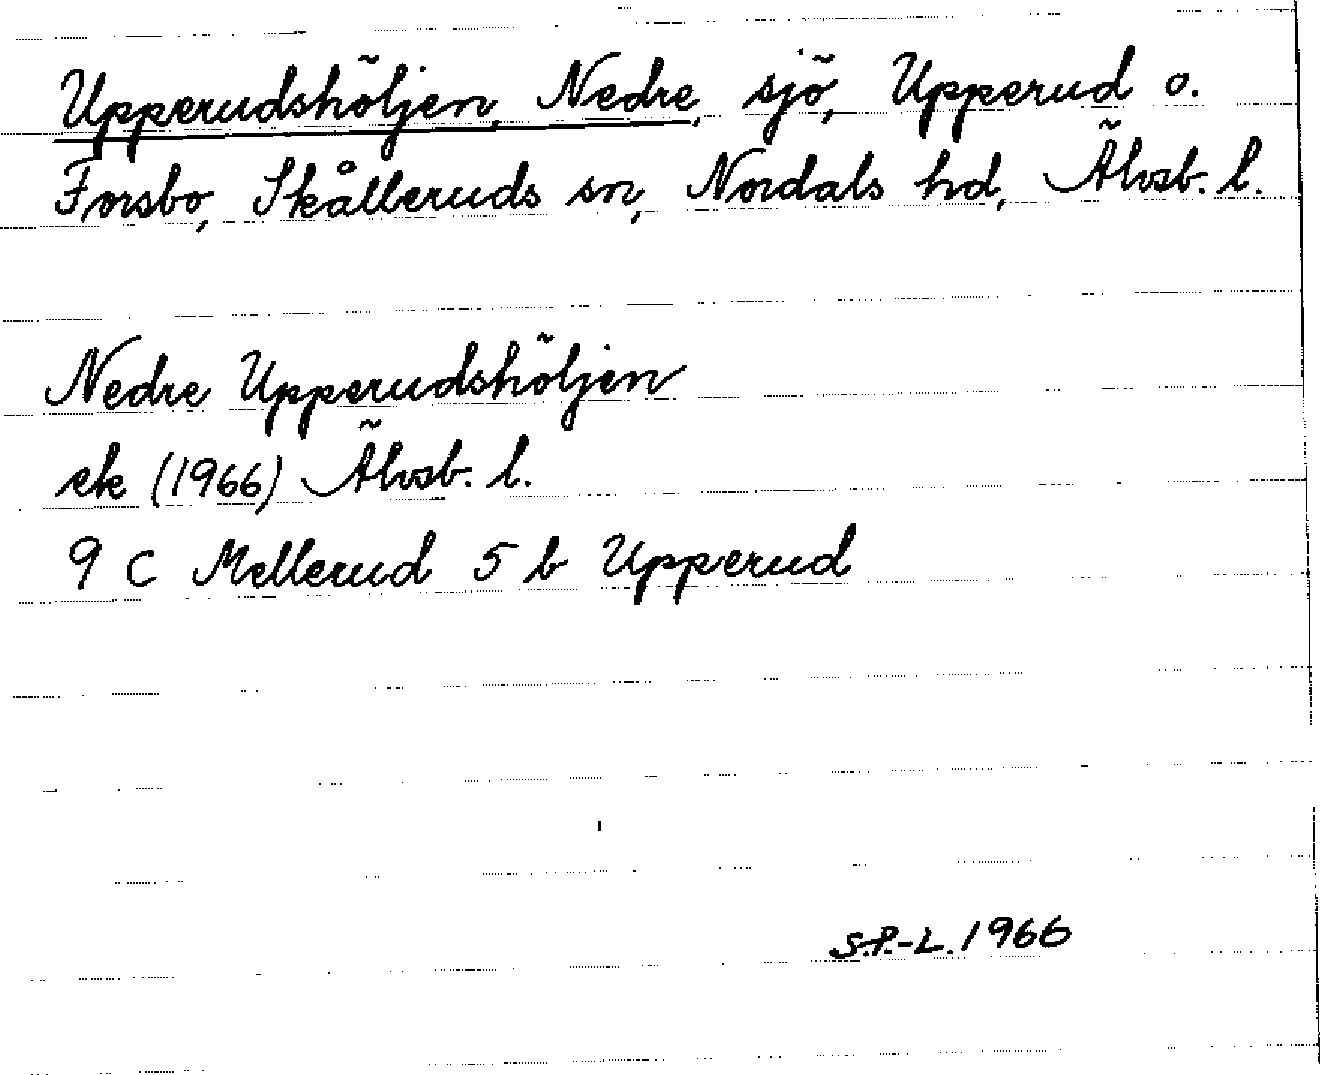 Upperudshöljen, Nedre, sjö, Upperud o.
Forsbo, Skålleruds sn, Nordals hd, Älvsb. l.
Nedre Upperudshöljen
ek (1966) Älvsb. l.
9 C Mellerud 5 b Upperud
S.P.-L. 1966